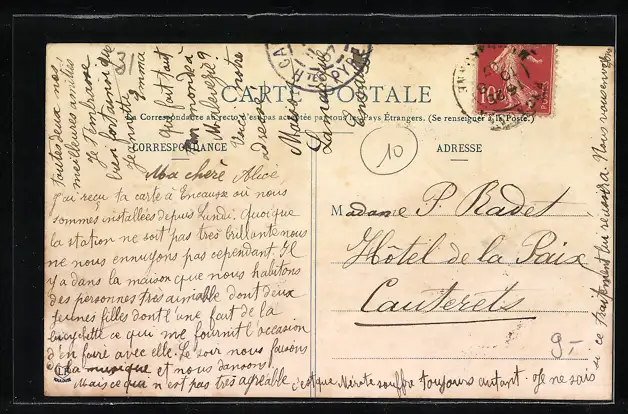 CARTE POSTALE
Correspondance au recto n'est pas acceptée par tous les Pays Étrangers. (Se renseigner à la Poste.)
CORRESPONDANCE
ADRESSE
Ma chère Alice
J'ai reçu ta carte à Encausse où nous
sommes installées depuis Lundi. Quoique
la station ne soit pas très brillante nous
ne nous ennuyons pas cependant. Il
y a dans la maison que nous habitons
des personnes très aimable dont deux
jeunes filles dont l'une fait de la
bicyclette ce qui me fournit l'occasion
d'en faire avec elle. Le soir nous faisons
de la musique et nous dansons
Mais ce qui n'est pas très agréable c'est que souffre toujours autant. Je ne sais
si ce traitement lui réussira. Nous vous
toutes deux nos
meilleures amitiés
Je t'embrasse
bien
Jeannette
Emma
Que fait
Melle
votre
adresse
Madame P. Radet
Hôtel de la Paix
Cauterets
10
10
9.-
31